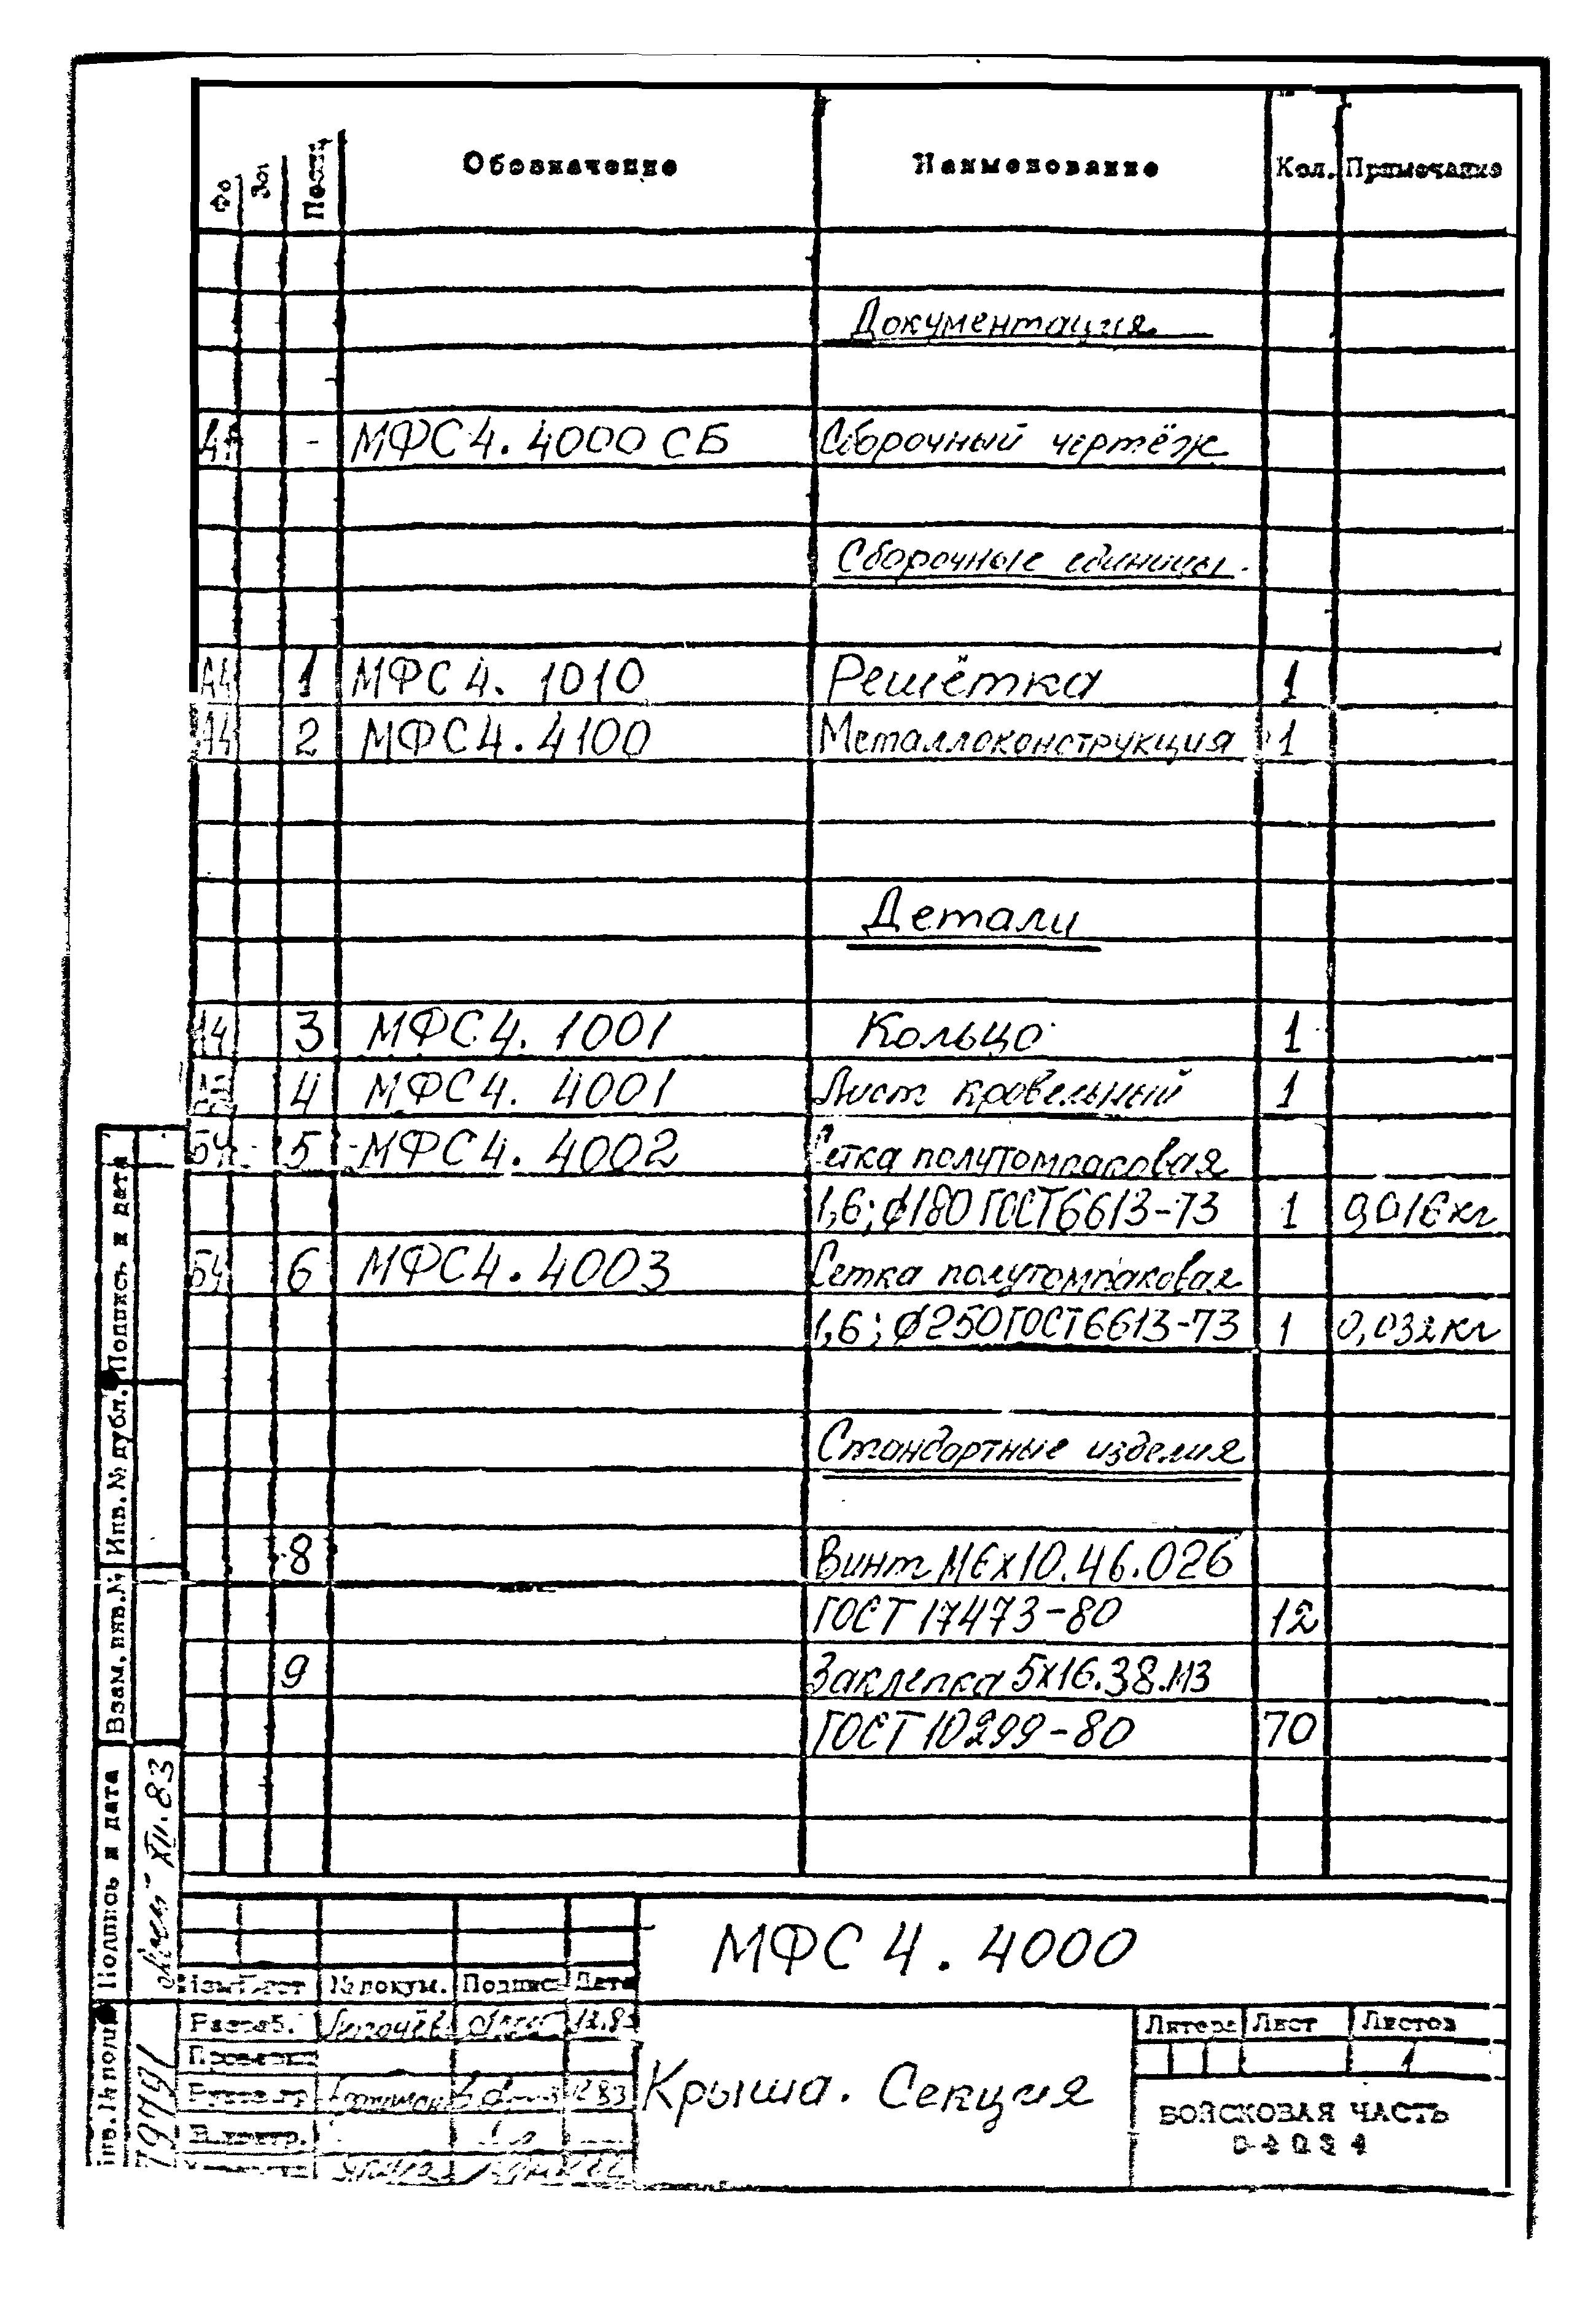 Обозначение Наименование Кол. Примечание
Документация
МФС 4. 4000 СБ Сборочный чертёж
Сборочные единицы.
А4 1 МФС 4. 1010 Решётка 1
А4 2 МФС 4. 4100 Металлоконструкция 1
Детали
А4 3 МФС 4. 1001 Кольцо 1
4 МФС 4. 4001 Лист кровельный 1
БЧ 5 МФС 4. 4002 Сетка полутомпаковая
1,6; ϕ180 ГОСТ 6613-73 1 0,016 кг
БЧ 6 МФС 4. 4003 Сетка полутомпаковая
1,6; ϕ250 ГОСТ 6613-73 1 0,032 кг
Стандартные изделия
8 Винт М6х10.46.026
ГОСТ 17473-80 12
9 Заклепка 5х16.38.М3
ГОСТ 10299-80 70
Подпись и дата
Инв. № дубл.
Взам. инв. №
Подпись и дата XII.83
МФС 4. 4000
№ докум. Подпись Дата
Разраб.
Крыша. Секция
Литера Лист Листов
1
ВОЙСКОВАЯ ЧАСТЬ